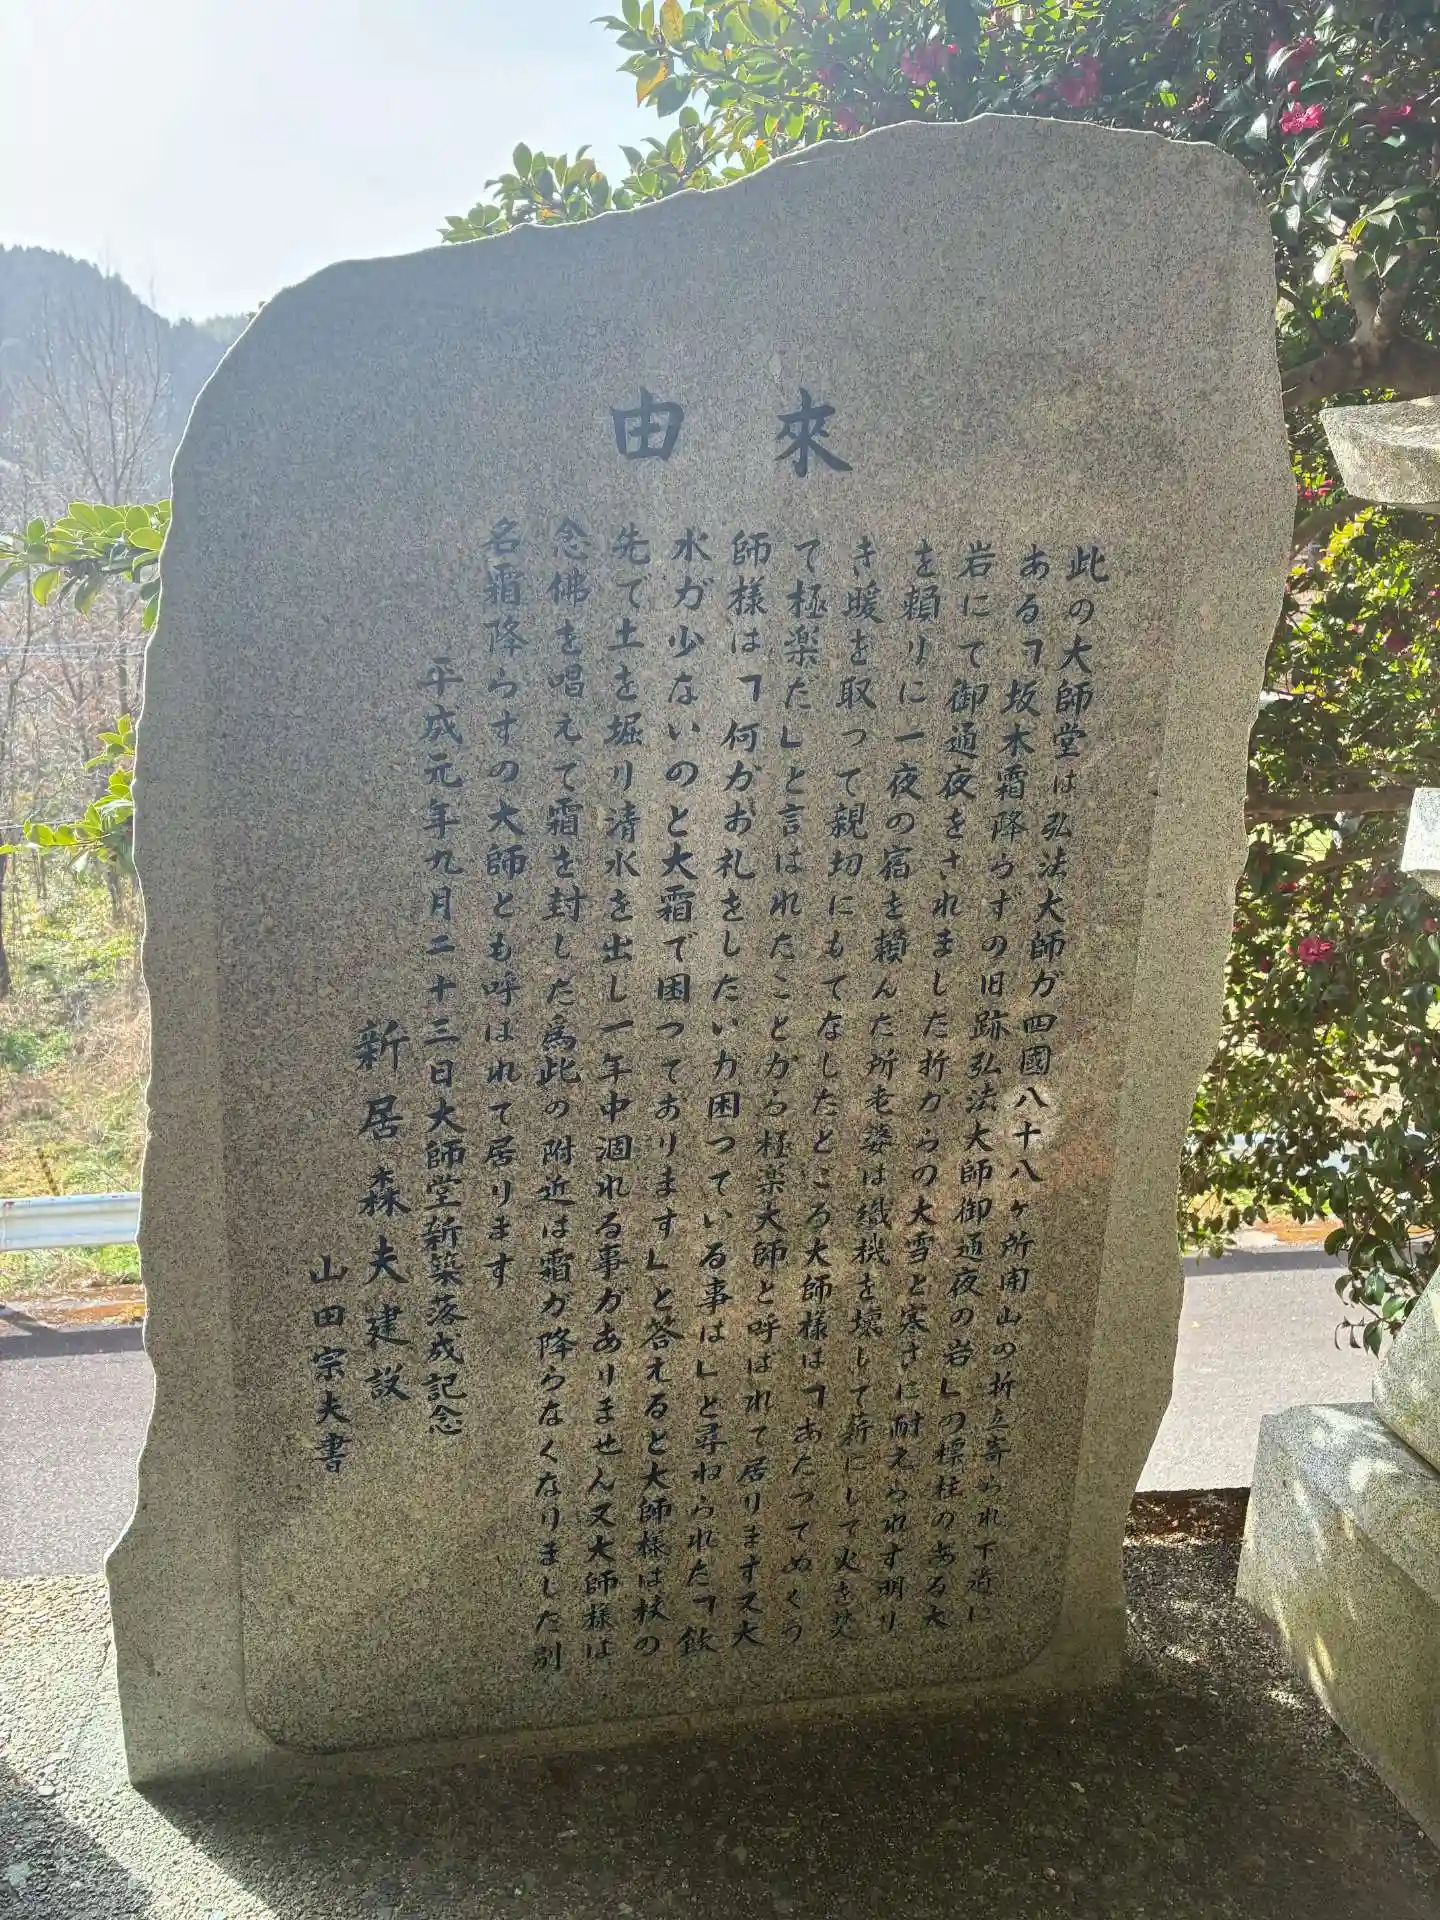 来由
此の大師堂は弘法大師が四國八十八ヶ所開山の折立寄られ下近に
ある「坂木霜降らずの旧跡弘法大師御通夜の岩」の標柱のある大
岩にて御通夜をされました折からの大雪と寒さに耐えられず明り
を頼りに一夜の宿を頼んだ所老婆は織機を壊して薪にして火を焚
き暖を取って親切にもてなしたところ大師様は「あたってめくう
て極楽だ」と言はれたことから極楽大師と呼ばれて居ります又大
師様は「何かお礼をしたいが困っている事は」と尋ねられた「飲
水が少ないのと大霜で困っております」と答えると大師様は杖の
先で土を堀り清水を出し一年中涸れる事がありません又大師様は
念佛を唱えて霜を封じた為此の附近は霜が降らなくなりました別
名霜降らずの大師とも呼はれて居ります
平成元年九月二十三日大師堂新築落成記念
新居森夫建設
山田宗夫書